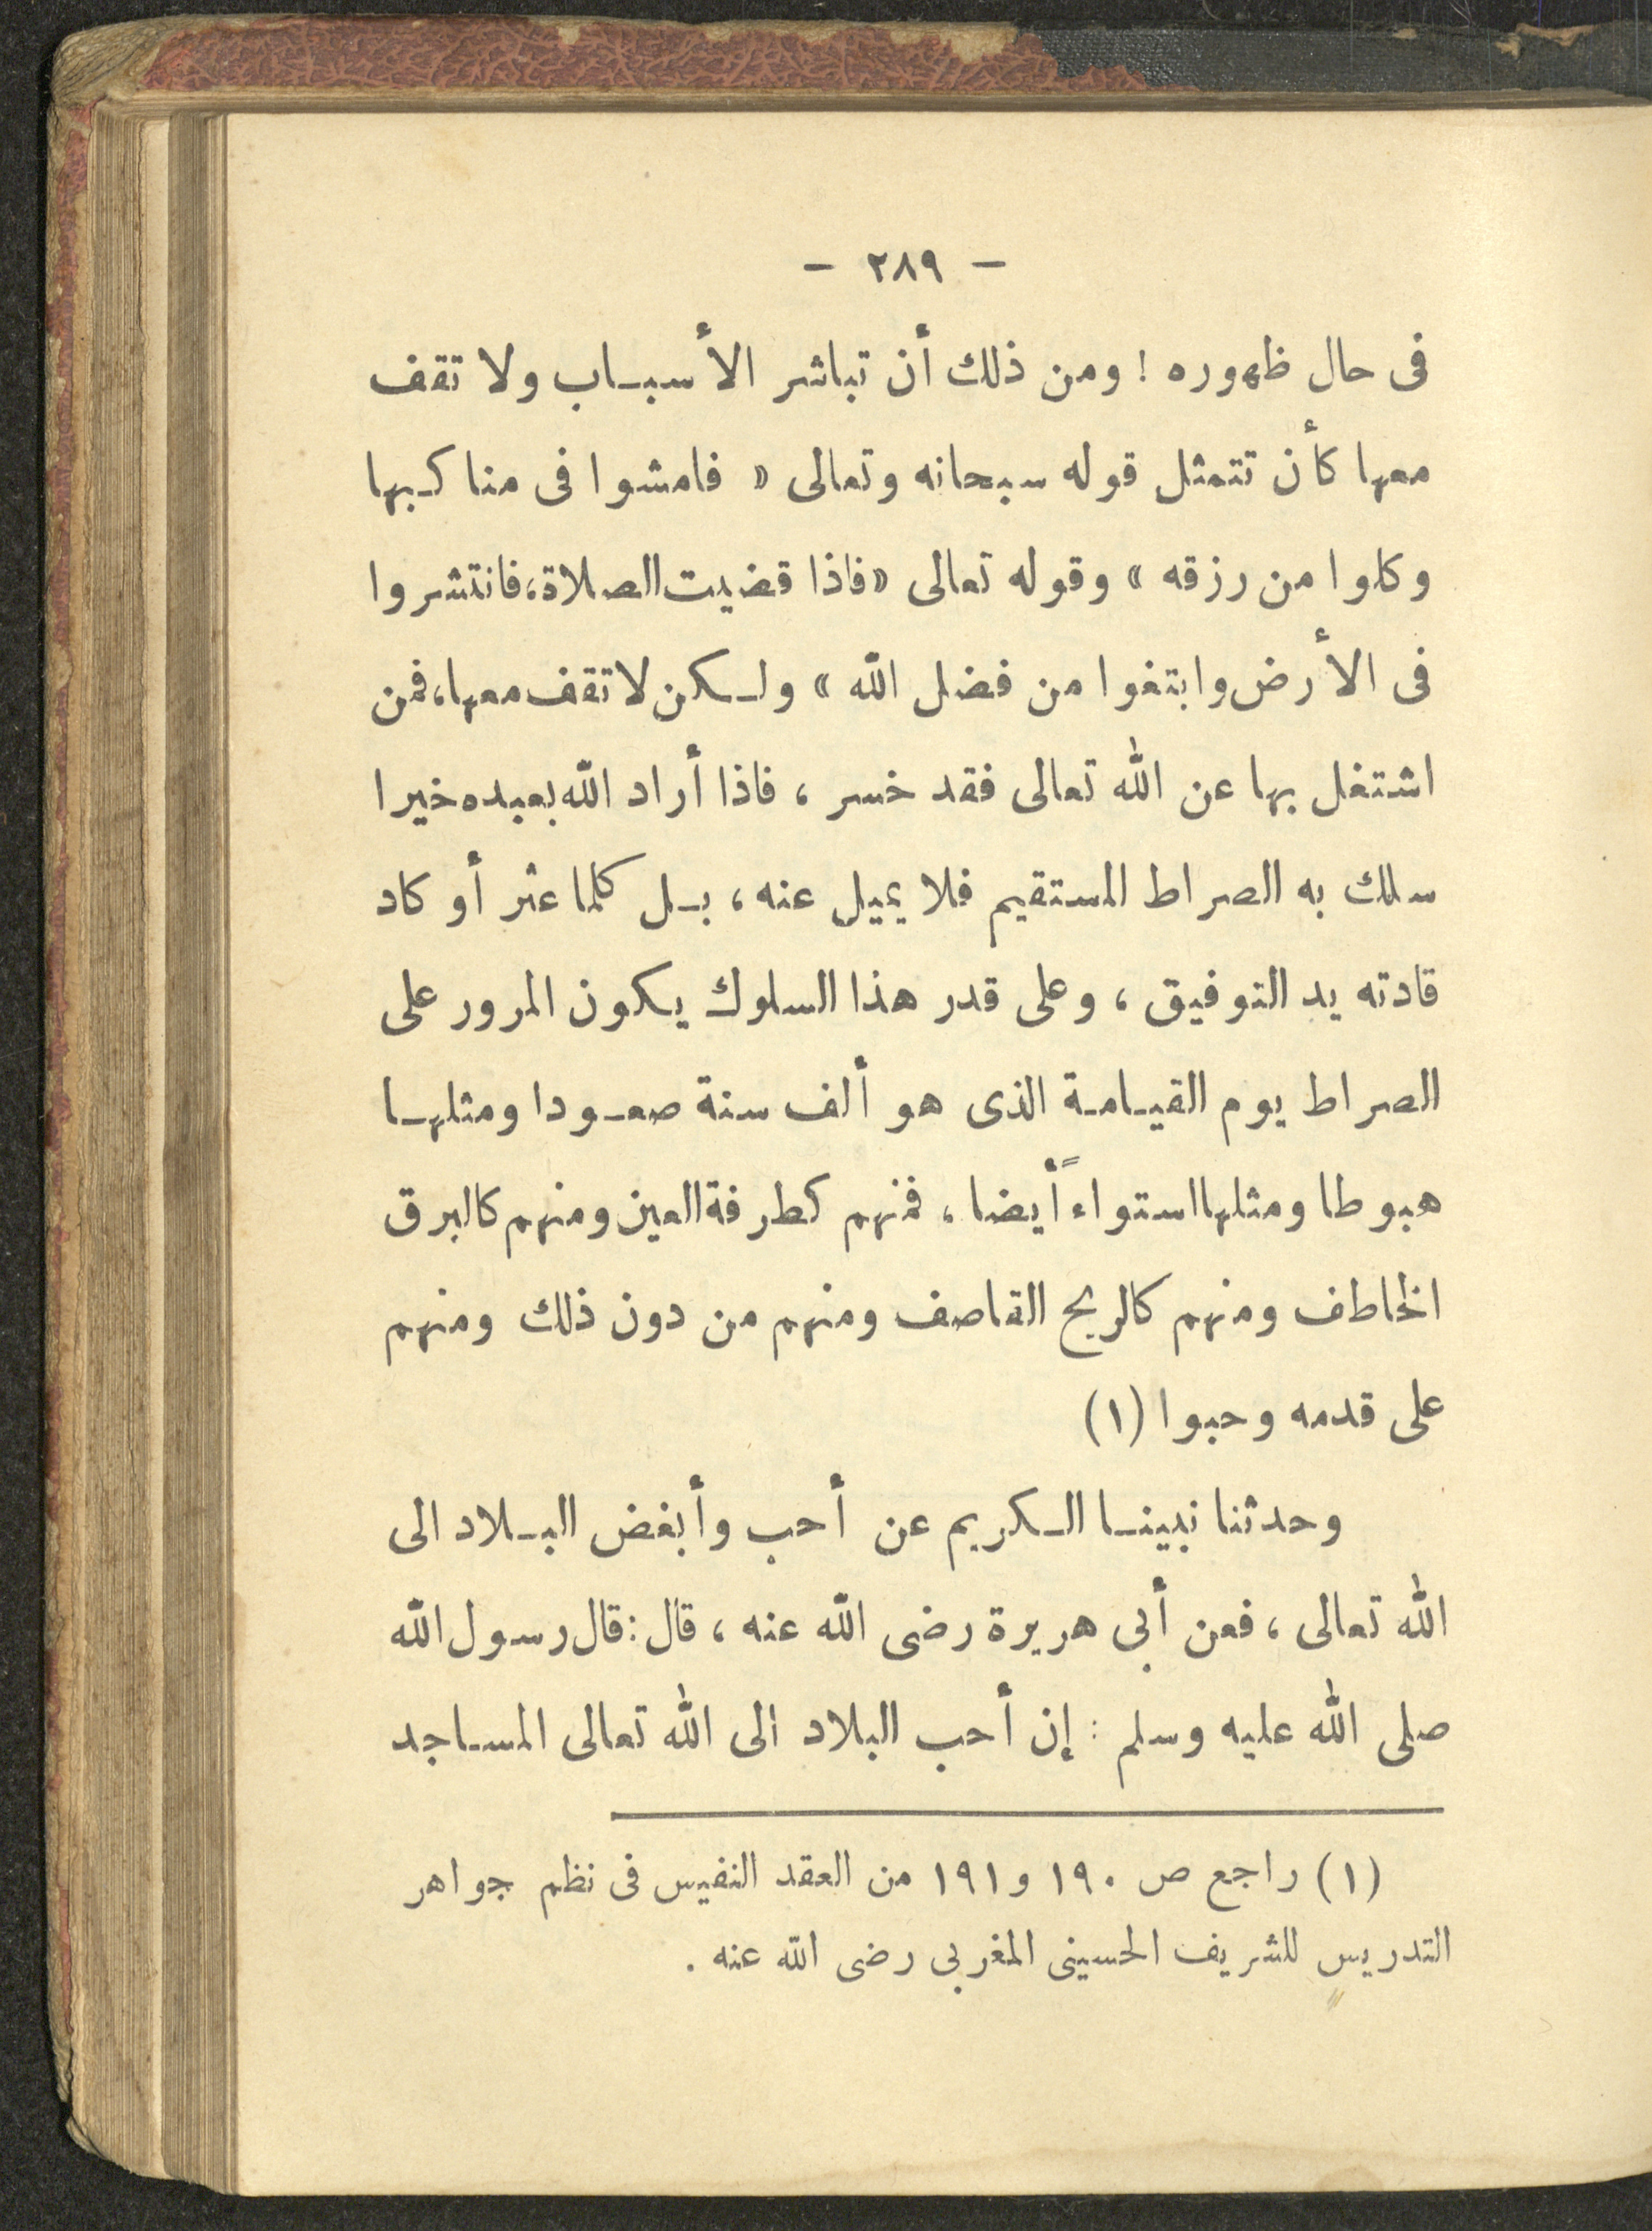 - ٢٨٩ -
فى حال ظهوره ! ومن ذلك أن تباشر الأسباب ولا تقف
معها كأن تتمثل قوله سبحانه وتعالى « فامشوا فى مناكبها
وكلوا من رزقه » وقوله تعالى «فاذا قضيت الصلاة، فانتشروا
فى الأرض وابتغوا من فضل الله » ولكن لا تقف معها، فمن
اشتغل بها عن الله تعالى فقد خسر ، فاذا أراد الله بعبده خيرا
سلك به الصراط المستقيم فلا يميل عنه ، بل كلما عثر أو كاد
قادته يد التوفيق ، وعلى قدر هذا السلوك يكون المرور على
الصراط يوم القيامة الذى هو ألف سنة صعودا ومثلها
هبوطا ومثلها استواءً أيضا ، فمنهم كطرفة العين ومنهم كالبرق
الخاطف ومنهم كالريح القاصف ومنهم من دون ذلك ومنهم
على قدمه وحبوا (١)
وحدثنا نبينا الكريم عن أحب وأبغض البلاد الى
الله تعالى ، فعن أبى هريرة رضى الله عنه ، قال : قال رسول الله
صلى الله عليه وسلم : إن أحب البلاد الى الله تعالى المساجد
(١) راجع ص ١٩٠ و ١٩١ من العقد النفيس فى نظم جواهر
التدريس للشريف الحسينى المغربى رضى الله عنه .